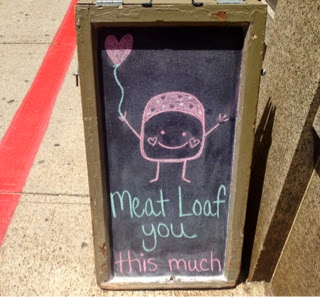 Meat Loaf
you
this much